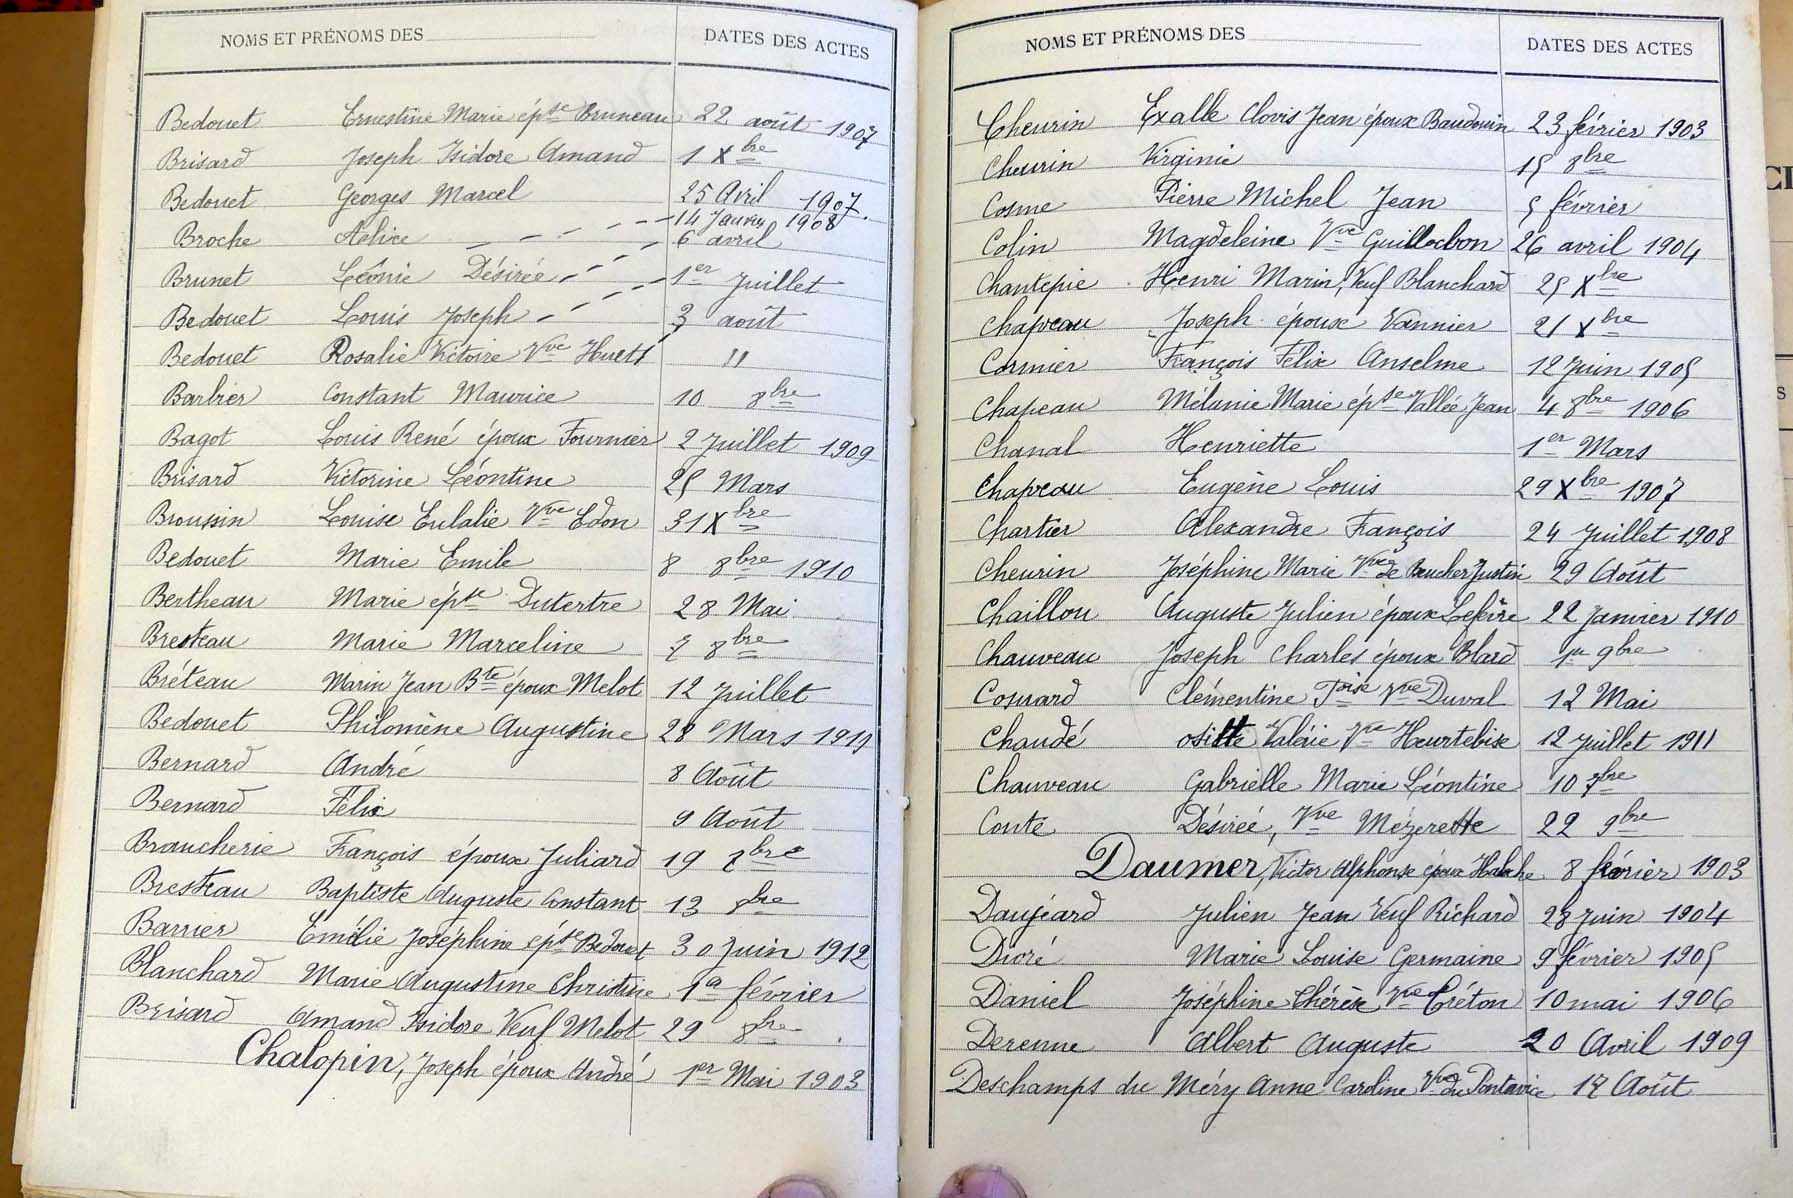 NOMS ET PRÉNOMS DES DATES DES ACTES
Bedouet Ernestine Marie épse Bruneau 22 août 1907
Brisard Joseph Isidore Amand 1 Xbre
Bedouet Georges Marcel 25 Avril 1907
14 Janvier 1908
Broche 6 avril
Brunet Léonie Désirée 1er Juillet
Bedouet Louis Joseph 3 août
Bedouet Rosalie Victoire Vve Huett "
Barbier Constant Maurice 10 8bre
Bagot Louis René époux Fournier 2 Juillet 1909
Brisard Victorine Léontine 25 Mars
Broussin Louise Eulalie Vve Edon 31 Xbre
Bedouet Marie Emile 8 8bre 1910
Bertheau Marie épse Dutertre 28 Mai
Bresteau Marie Marceline 8bre
Bréteau Marin Jean Bte époux Melot 12 Juillet
Bedouet Philomène Augustine 28 Mars 1911
Bernard André 8 Août
Bernard Félix 9 Août
Brancherie François époux Juliard 19 7bre
Bresteau Baptiste Auguste Constant 13 8bre
Barrier Emélie Joséphine épse Bedouet 30 Juin 1912
Blanchard Marie Augustine Christine 1er février
Brisard Amand Isidore Veuf Melot 29 8bre
Chalopin, Joseph époux André 1er Mai 1903
NOMS ET PRÉNOMS DES DATES DES ACTES
Cheurin Exalle Clovis Jean époux Baudouin 23 février 1903
Cheurin Virginie 15 8bre
Cosme Pierre Michel Jean 5 février
Colin Magdeleine Vve Guillochon 26 avril 1904
Chantepie Henri Marin, Veuf Blanchard 25 Xbre
Chapeau Joseph époux Vannier 21 Xbre
Cormier François Félix Anselme 12 Juin 1905
Chapeau Mélanie Marie épse Vallée Jean 4 8bre 1906
Chanal Henriette 1er Mars
Chapeau Eugène Louis 29 Xbre 1907
Chartier Alexandre François 24 Juillet 1908
Cheurin Joséphine Marie Vve de Boucher Justin 29 Août
Chaillou Auguste Julien époux Lefèvre 22 Janvier 1910
Chauveau Joseph Charles époux Blard 1er 9bre
Cosnard Clémentine Vve Duval 12 Mai
Chaudé Ositte Valérie Vve Heurtebise 12 Juillet 1911
Chauveau Gabrielle Marie Léontine 10 7bre
Conté Désirée, Vve Mézerette 22 9bre
Daumer, Victor Alphonse époux 8 février 1903
Daujeard Julien Jean Veuf Richard 28 Juin 1904
Dioré Marie Louise Germaine 9 février 1905
Daniel Joséphine Thérèse Vve Créton 10 mai 1906
Derenne Albert Auguste 20 Avril 1909
Deschamps du Méry Anne Caroline Vve du Pontavice 17 Août